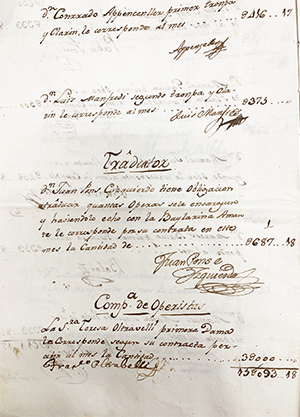 dⁿ Conrrado Appencenller primer trompa
y Clarin, le corresponde al mes 9416..17
dⁿ Luis Manfredi segundo trompa y Cla-
rin le corresponde al mes 9373..18
Luis Manfredi
Tradutor
dⁿ Juan Ponse Ezquierdo tiene Obligacion
traducir quantas Operas sele encarguen
y haviendolo echo con la Baylarina Aman-
te le corresponde por su contrata en este
mes la Cantidad de 9687..18
Juan Ponce
Izquierdo
Compª de Operistas
La Sʳᵃ Teresa Oltravelli primera Dama
la Corresponde segun su contracta per-
civir al mes la Cantidad 39000
158093..18